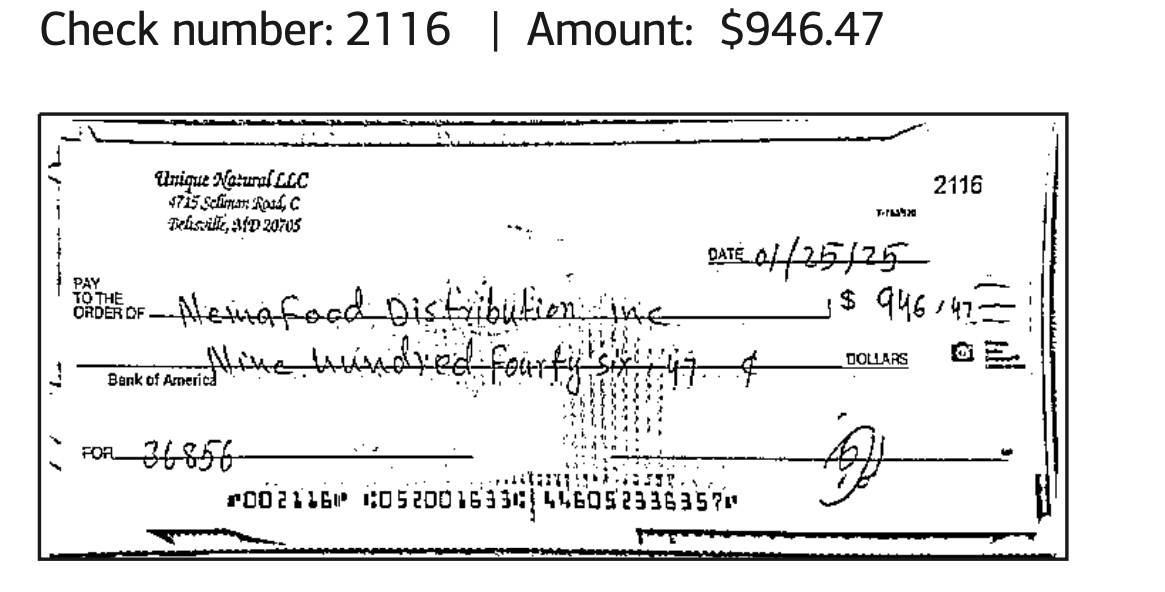 Check number: 2116 | Amount: $946.47
Unique Natural LLC
4715 Sellman Road, C
Beltsville, MD 20705
2116
DATE 01/25/25
PAY
TO THE
ORDER OF Nema Food Distribution Inc $ 946/47
Nine hundred fourty six, 47 ¢ DOLLARS
Bank of America
FOR 36856
⑈002116⑈ ⑆052001633⑆ 446052336357⑈